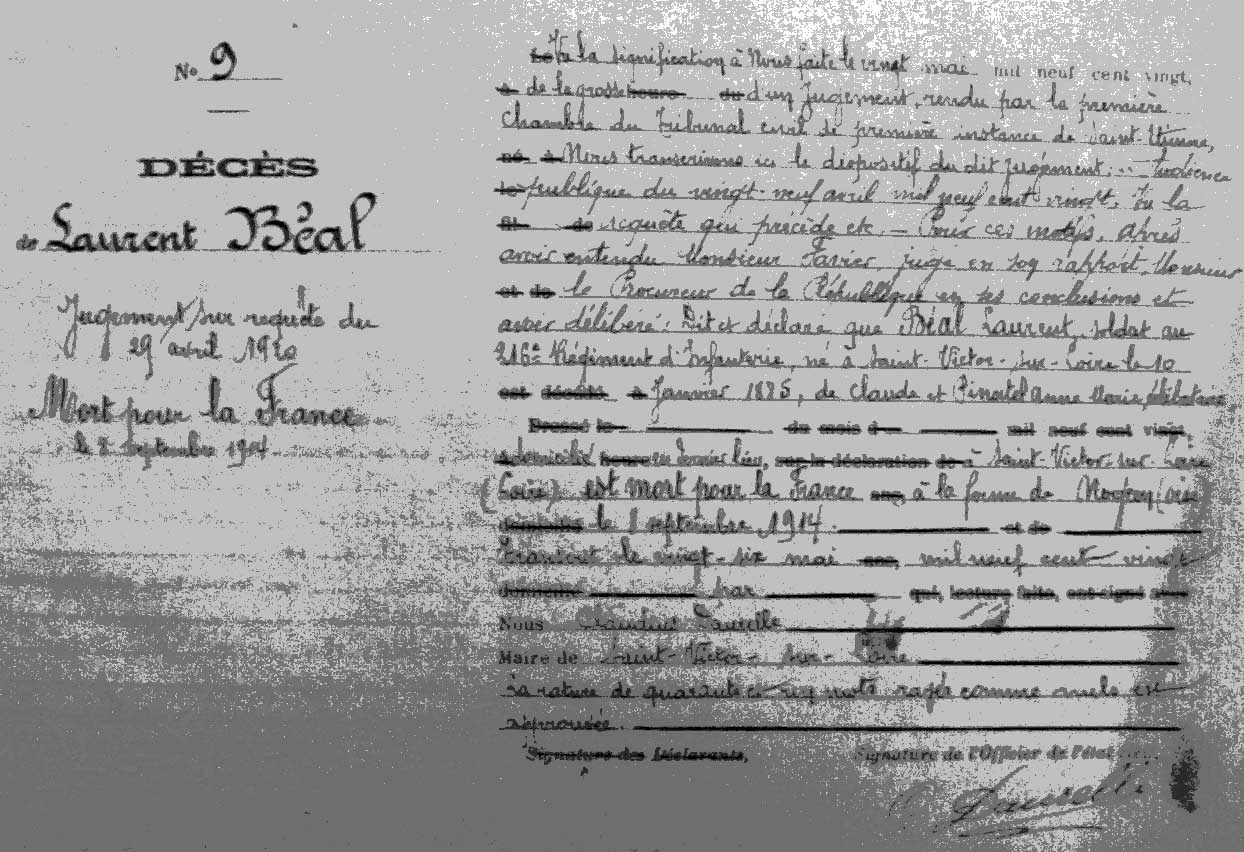 No 9
DÉCÈS
de Laurent Béal
Jugement sur requête du
29 avril 1920
Mort pour la France
le 2 septembre 1914
Vu la signification à Nous faite le vingt mai mil neuf cent vingt,
de la grosse d'un jugement, rendu par la première
Chambre du Tribunal civil de première instance de Saint Etienne,
Nous transcrivons ici le dispositif du dit jugement: Audience
publique du vingt-neuf avril mil neuf cent vingt. Vu la
requête qui précède etc. — Pour ces motifs, après
avoir entendu Monsieur Favier, juge en son rapport, Monsieur
le Procureur de la République en ses conclusions et
avoir délibéré: Dit et déclare que Béal Laurent, soldat au
216e Régiment d'Infanterie, né à Saint-Victor-sur-Loire le 10
Janvier 1885, de Claude et Pinatel Anne Marie, célibataire
Dressé le du mois d mil neuf cent vingt,
domicilié en dernier lieu, sur la déclaration de à Saint-Victor-sur-Loire
(Loire) est mort pour la France à la ferme de
le 2 septembre 1914. et de
Transcrit le vingt-six mai mil neuf cent vingt
par qui, lecture faite, ont signé avec
Nous
Maire de Saint-Victor-sur-Loire
La rature de quarante cinq mots rayés comme nuls est
approuvée.
Signature des Déclarants, Signature de l'Officier de l'état